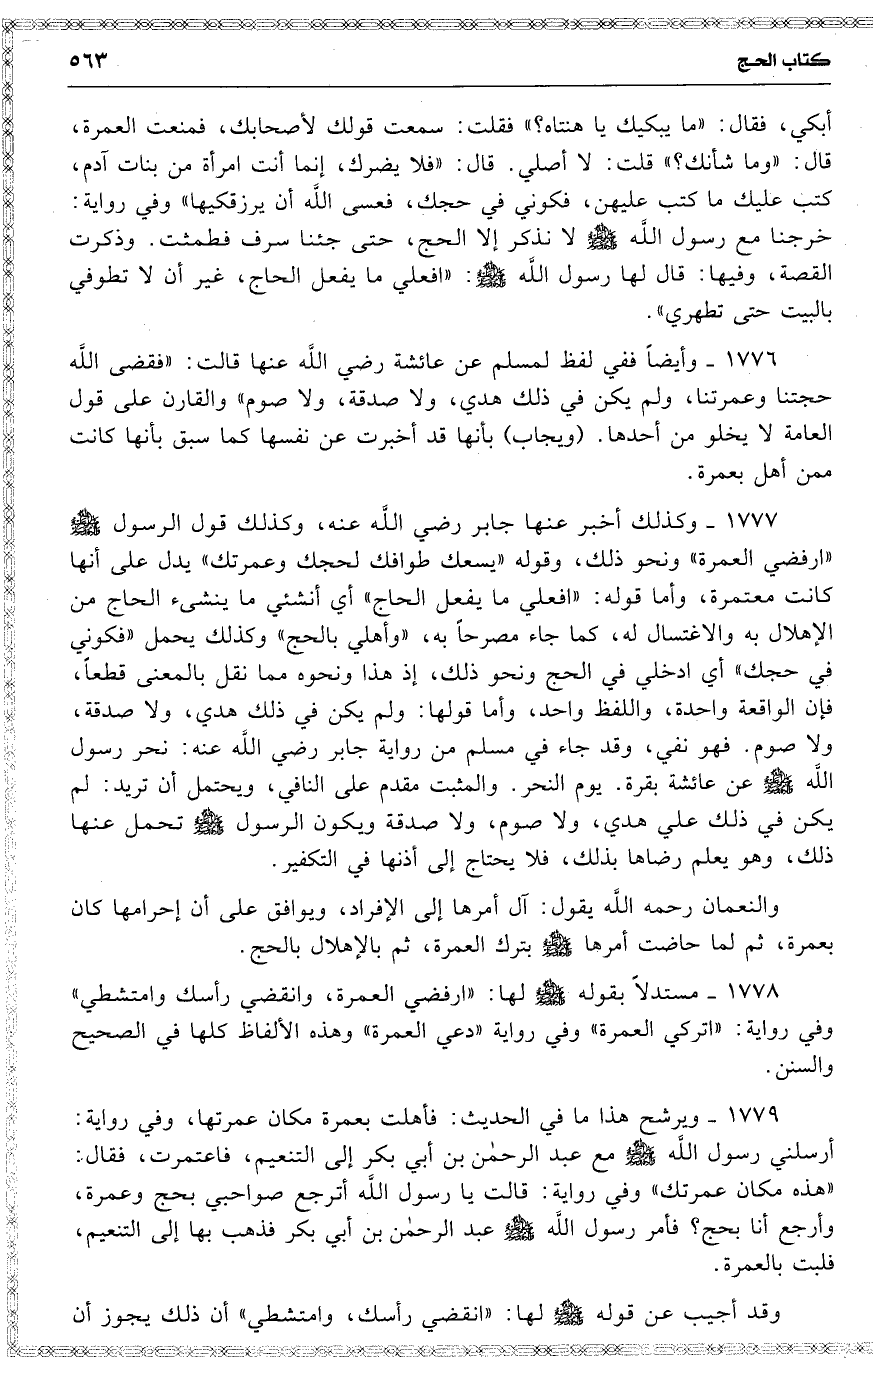 كتاب الحج ٥٦٣
أبكي، فقال: «ما يبكيك يا هنتاه؟» فقلت: سمعت قولك لأصحابك، فمنعت العمرة،
قال: «وما شأنك؟» قلت: لا أصلي. قال: «فلا يضرك، إنما أنت امرأة من بنات آدم،
كتب عليك ما كتب عليهن، فكوني في حجك، فعسى اللَّه أن يرزقكيها» وفي رواية:
خرجنا مع رسول اللَّه ﷺ لا نذكر إلا الحج، حتى جئنا سرف فطمثت. وذكرت
القصة، وفيها: قال لها رسول اللَّه ﷺ: «افعلي ما يفعل الحاج، غير أن لا تطوفي
بالبيت حتى تطهري».
١٧٧٦ ـ وأيضاً ففي لفظ لمسلم عن عائشة رضي اللَّه عنها قالت: «فقضى اللَّه
حجتنا وعمرتنا، ولم يكن في ذلك هدي، ولا صدقة، ولا صوم» والقارن على قول
العامة لا يخلو من أحدها. (ويجاب) بأنها قد أخبرت عن نفسها كما سبق بأنها كانت
ممن أهل بعمرة.
١٧٧٧ ـ وكذلك أخبر عنها جابر رضي اللَّه عنه، وكذلك قول الرسول ﷺ
«ارفضي العمرة» ونحو ذلك، وقوله «يسعك طوافك لحجك وعمرتك» يدل على أنها
كانت معتمرة، وأما قوله: «افعلي ما يفعل الحاج» أي أنشئي ما ينشىء الحاج من
الإهلال به والاغتسال له، كما جاء مصرحاً به، «وأهلي بالحج» وكذلك يحمل «فكوني
في حجك» أي ادخلي في الحج ونحو ذلك، إذ هذا ونحوه مما نقل بالمعنى قطعاً،
فإن الواقعة واحدة، واللفظ واحد، وأما قولها: ولم يكن في ذلك هدي، ولا صدقة،
ولا صوم. فهو نفي، وقد جاء في مسلم من رواية جابر رضي اللَّه عنه: نحر رسول
اللَّه ﷺ عن عائشة بقرة. يوم النحر. والمثبت مقدم على النافي، ويحتمل أن تريد: لم
يكن في ذلك علي هدي، ولا صوم، ولا صدقة ويكون الرسول ﷺ تحمل عنها
ذلك، وهو يعلم رضاها بذلك، فلا يحتاج إلى أذنها في التكفير.
والنعمان رحمه اللَّه يقول: آل أمرها إلى الإفراد، ويوافق على أن إحرامها كان
بعمرة، ثم لما حاضت أمرها ﷺ بترك العمرة، ثم بالإهلال بالحج.
١٧٧٨ ـ مستدلاً بقوله ﷺ لها: «ارفضي العمرة، وانقضي رأسك وامتشطي»
وفي رواية: «اتركي العمرة» وفي رواية «دعي العمرة» وهذه الألفاظ كلها في الصحيح
والسنن.
١٧٧٩ ـ ويرشح هذا ما في الحديث: فأهلت بعمرة مكان عمرتها، وفي رواية:
أرسلني رسول اللَّه ﷺ مع عبد الرحمٰن بن أبي بكر إلى التنعيم، فاعتمرت، فقال:
«هذه مكان عمرتك» وفي رواية: قالت يا رسول اللَّه أترجع صواحبي بحج وعمرة،
وأرجع أنا بحج؟ فأمر رسول اللَّه ﷺ عبد الرحمٰن بن أبي بكر فذهب بها إلى التنعيم،
فلبت بالعمرة.
وقد أجيب عن قوله ﷺ لها: «انقضي رأسك، وامتشطي» أن ذلك يجوز أن